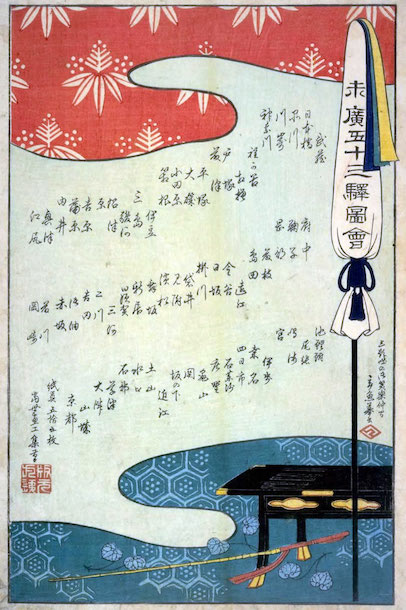 末廣五十三驛圖會
武蔵
日本橋
品川
川崎
神奈川
程ヶ谷
相模
戸塚
藤沢
平塚
大磯
小田原
箱根
伊豆
三島
駿河
沼津
原
吉原
蒲原
由井
奥津
江尻
府中
鞠子
岡部
藤枝
島田
遠江
金谷
日坂
掛川
袋井
見附
濱松
舞坂
新居
白須賀
三河
二川
吉田
御油
赤坂
岡崎
池鯉鮒
尾張
鳴海
宮
伊勢
桑名
四日市
石薬師
庄野
亀山
関
坂の下
近江
土山
水口
石部
草津
大津
山城
京都
紙員五拾五枚